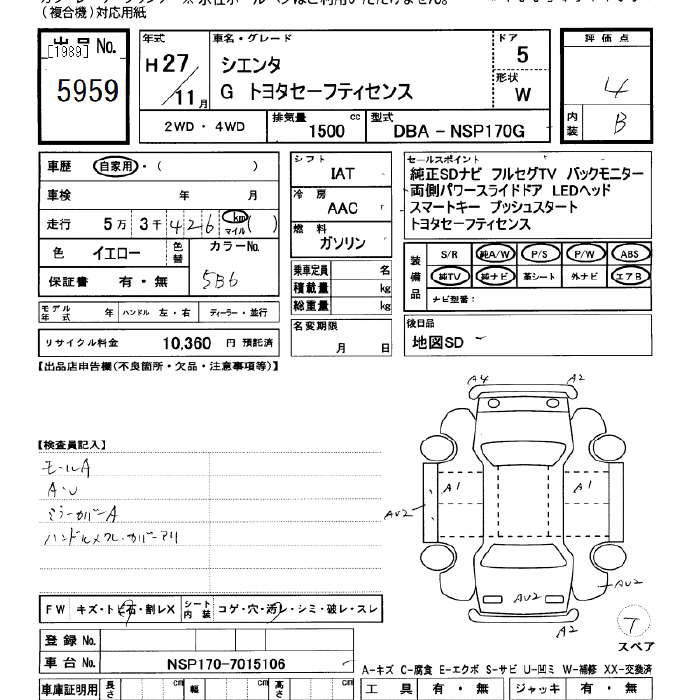 (複合機)対応用紙
出品 No.
[1989]
5959
年式
H 27 / 11 月
車名・グレード
シエンタ
G トヨタセーフティセンス
ドア
5
形状
W
評価点
4
内装
B
2WD・4WD
排気量
1500 cc
型式
DBA - NSP170G
車歴 自家用・( )
車検 年 月
走行 5万 3千 426 km マイル ( )
色 イエロー 色替
カラーNo.
5B6
保証書 有・無
シフト
IAT
冷房
AAC
燃料
ガソリン
乗車定員 名
積載量 kg
総重量 kg
名変期限
月 日
セールスポイント
純正SDナビ フルセグTV バックモニター
両側パワースライドドア LEDヘッド
スマートキー プッシュスタート
トヨタセーフティセンス
装備品
S/R 純A/W P/S P/W ABS
純TV 純ナビ 革シート 外ナビ エアB
ナビ型番:
後日品
地図SD
モデル年式 年 ハンドル 左・右 ディーラー・並行
リサイクル料金 10,360 円 預託済
【出品店申告欄(不良箇所・欠品・注意事項等)】
【検査員記入】
モールA
A・U
ミラーカバーA
A4
A2
A1
A1
AU2
AU2
AU2
A2
FW キズ・ト石・割レX
シート内装 コゲ・穴・汚レ・シミ・破レ・スレ
登録 No.
車台 No. NSP170-7015106
T
スペア
A-キズ C-腐食 E-エクボ S-サビ U-凹ミ W-補修 XX-交換済
車庫証明用 長さ cm 幅 cm 高さ cm
工具 有・無 ジャッキ 有・無